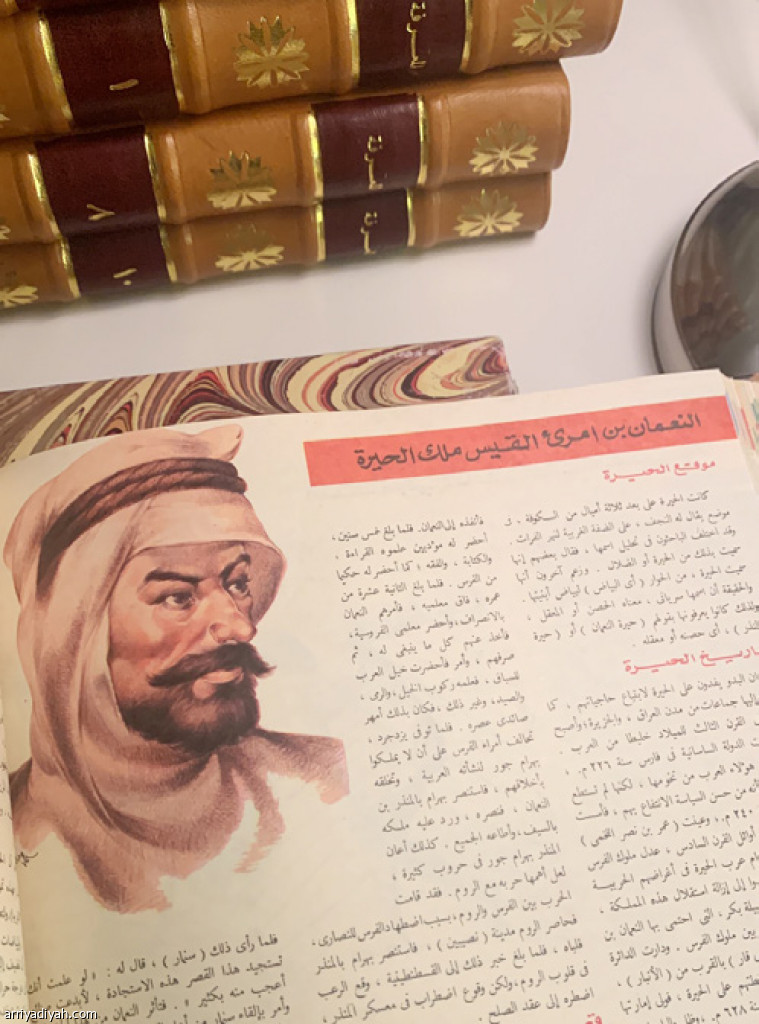 المعرفة
١
المعرفة
٨
١٠
النعمان بن امرئ القيس ملك الحيرة
موقع الحيرة
كانت الحيرة على بعد ثلاثة أميال من الكوفة . فى
موضع يقال له النجف ، على الضفة الغربية لنهر الفرات .
وقد اختلف الباحثون فى تحليل اسمها ، فقال بعضهم إنها
سميت بذلك من الحيرة أو الضلال . وزعم آخرون أنها
سميت الحيرة ، من الحوار ( أى البياض ) لبياض أبنيتها .
والحقيقة أن اسمها سريانى ، معناه الحصن أو المعقل ،
ولذلك كانوا يعرفونها بقولهم ( حيرة النعمان ) أو ( حيرة
المنذر ) ، أى حصنه أو معقله .
تاريخ الحيرة
البدو يفدون على الحيرة لابتياع حاجياتهم ، كما
جماعات من مدن العراق ، والجزيرة ، وأصبح
القرن الثالث للميلاد خليطا من العرب .
الدولة الساسانية فى فارس سنة ٢٢٦ م . ،
هؤلاء العرب من تخومها ، لكنها لم تستطع
من حسن السياسة الانتفاع بهم ، فأسست
٢٤٠ م . ، وعينت ( عمر بن نصر اللخمى )
أوائل القرن السادس ، عدل ملوك الفرس
عرب الحيرة فى أغراضهم الحربية
إلى إزالة استقلال هذه المملكة ،
بكر ، التى احتمى بها النعمان بن
بين ملوك الفرس . ودارت الدائرة
قار ) بالقرب من ( الأنبار ) ،
على الحيرة ، فولى إمارتها
٦٢٨ م .
فأنفذه إلى النعمان . فلما بلغ خمس سنين ،
أحضر له مؤدبين علموه القراءة ،
والكتابة ، والفقه ، كما أحضر له حكيما
من الفرس . فلما بلغ الثانية عشرة من
عمره ، فاق معلميه ، فأمرهم النعمان
بالانصراف ، وأحضر معلمى الفروسية ،
فأخذ عنهم كل ما ينبغى له ، ثم
صرفهم ، وأمر فأحضرت خيل العرب
للسباق . فعلمه ركوب الخيل ، والرمى ،
والصيد ، وغير ذلك ، فكان بذلك أمهر
صائدى عصره . فلما توفى يزدجرد ،
تحالف أمراء الفرس على أن لا يملكوا
بهرام جور لنشأته العربية ، وتخلقه
بأخلاقهم ، فاستنصر بهرام بالمنذر بن
النعمان ، فنصره ، ورد عليه ملكه
بالسيف ، وأطاعه الجميع . كذلك أعان
المنذر بهرام جور فى حروب كثيرة ،
لعل أهمها حربه مع الروم . فقد قامت
الحرب بين الفرس والروم ، بسبب اضطهاد الفرس للنصارى ،
فحاصر الروم مدينة ( نصيبين ) ، فاستنصر بهرام بالمنذر
فلباه ، فلما بلغ خبر ذلك إلى القسطنطينية ، وقع الرعب
فى قلوب الروم ، ولكن وقوع اضطراب فى معسكر المنذر ،
اضطره إلى عقد الصلح .
فلما رأى ذلك ( سنمار ) ، قال له : « لو علمت أنك
تستجيد هذا القصر هذه الاستجادة ، لأبدعت
أعجب منه بكثير » . فتأثر النعمان
وأمر بإلقاء سنمار من
arriyadiyah.com